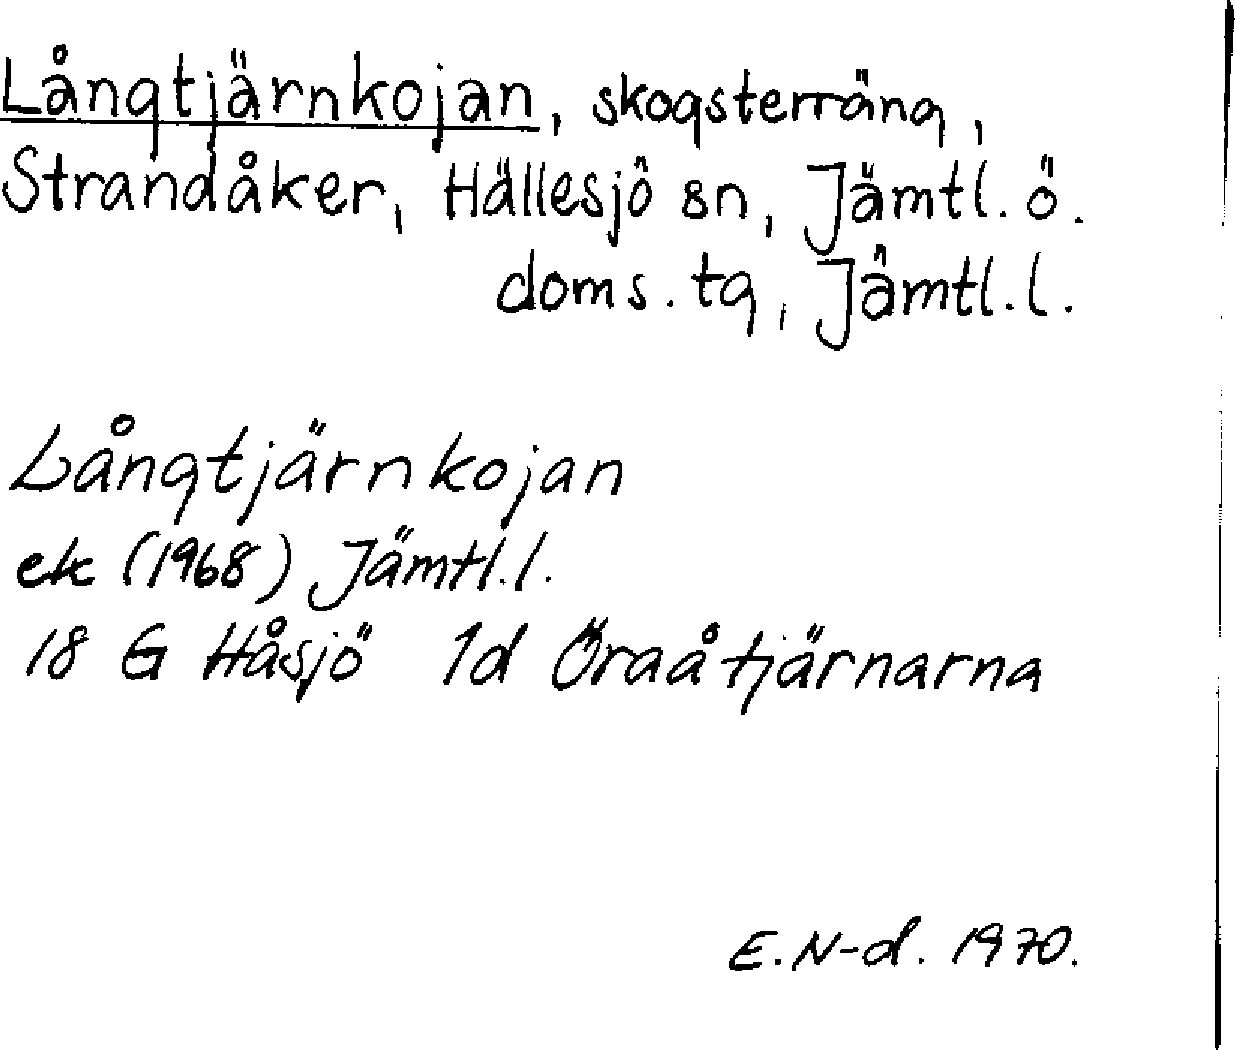 Långtjärnkojan, skogsterräng,
Strandåker, Hällesjö sn, Jämtl. ö.
doms. tg, Jämtl. l.
Långtjärnkojan
ek (1968) Jämtl. l.
18 G Håsjö 1d Öraåtjärnarna
E. N-d. 1970.